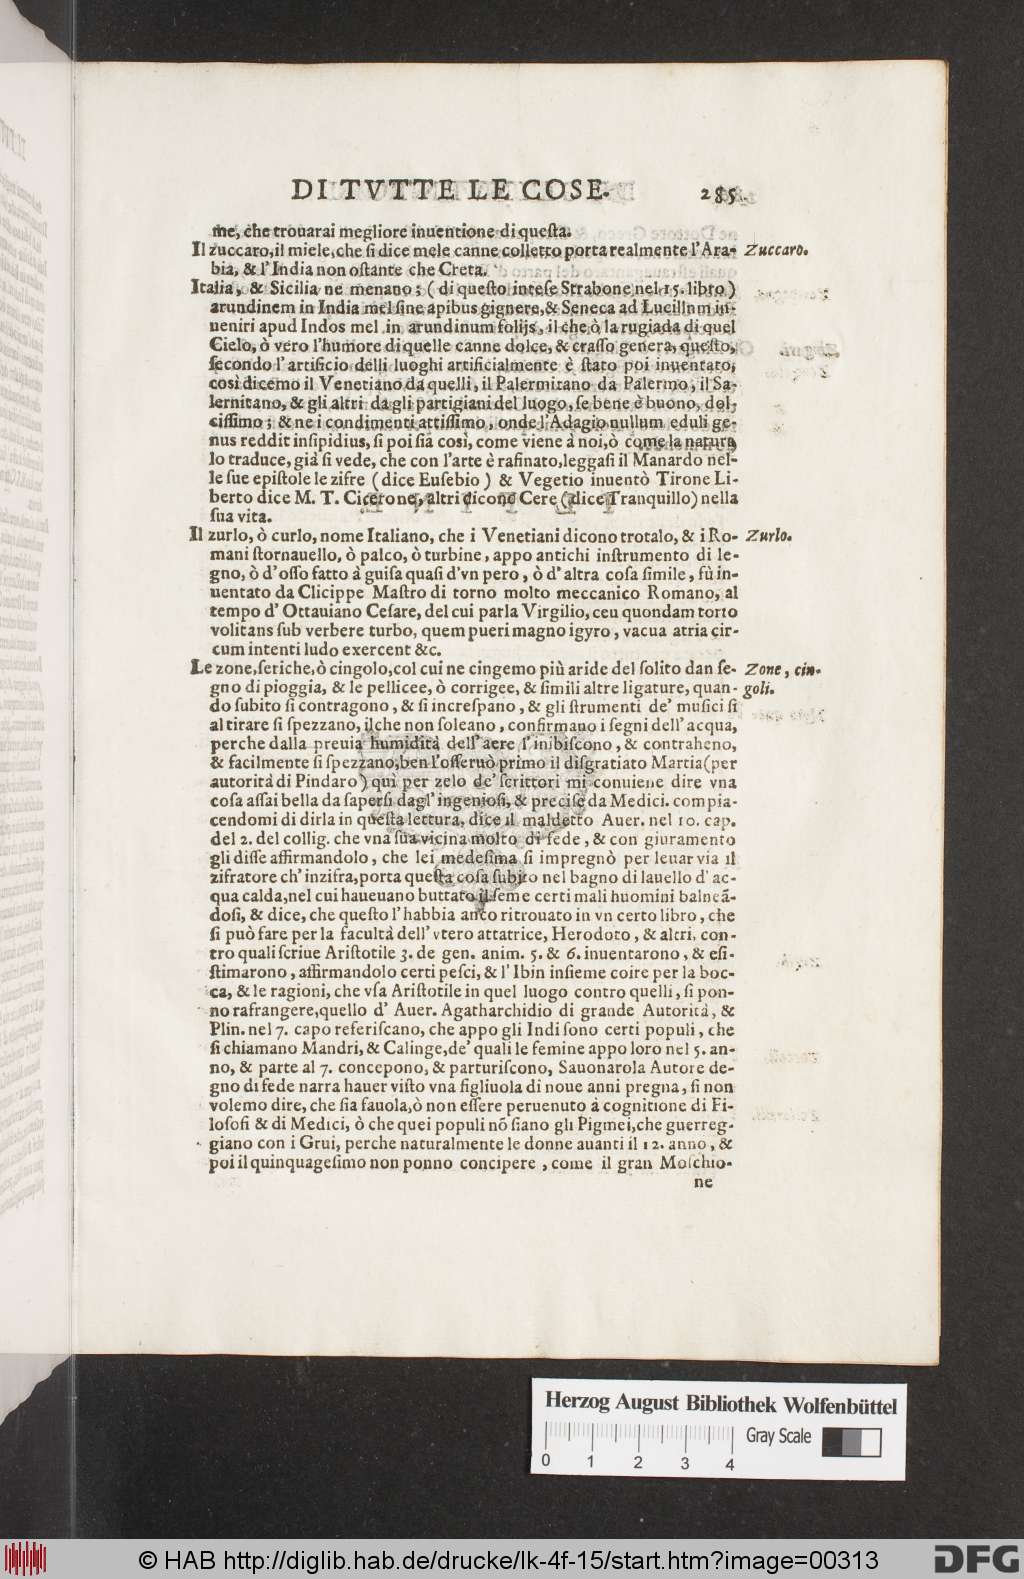 DI TVTTE LE COSE. 285
me, che trouarai megliore inuentione di queſta.
Il zuccaro, il miele, che ſi dice mele canne colletto porta realmente l'Ara- Zuccaro.
bia, & l'India non oſtante che Creta.
Italia, & Sicilia ne menano; (di queſto inteſe Strabone nel 15. libro)
arundinem in India mel ſine apibus gignere, & Seneca ad Lucillum in-
ueniri apud Indos mel in arundinum folijs, il che ò la rugiada di quel
Cielo, ò vero l'humore di quelle canne dolce, & craſſo genera, queſto,
ſecondo l'artificio delli luoghi artificialmente è ſtato poi inuentato,
così dicemo il Venetiano da quelli, il Palermitano da Palermo, il Sa-
lernitano, & gli altri da gli partigiani del luogo, ſe bene è buono, dol-
ciſſimo; & ne i condimenti attiſſimo, onde l'Adagio nullum eduli ge-
nus reddit inſipidius, ſi poi ſia così, come viene à noi, ò come la natura
lo traduce, già ſi vede, che con l'arte è rafinato, leggaſi il Manardo nel-
le ſue epiſtole le zifre (dice Euſebio) & Vegetio inuentò Tirone Li-
berto dice M. T. Cicerone, altri dicono Cere (dice Tranquillo) nella
ſua vita.
Il zurlo, ò curlo, nome Italiano, che i Venetiani dicono trotalo, & i Ro- Zurlo.
mani ſtornauello, ò palco, ò turbine, appo antichi inſtrumento di le-
gno, ò d'oſſo fatto à guiſa quaſi d'vn pero, ò d'altra coſa ſimile, fù in-
uentato da Clicippe Maſtro di torno molto meccanico Romano, al
tempo d'Ottauiano Ceſare, del cui parla Virgilio, ceu quondam torto
volitans ſub verbere turbo, quem pueri magno igyro, vacua atria cir-
cum intenti ludo exercent &c.
Le zone, ſeriche, ò cingolo, col cui ne cingemo più aride del ſolito dan ſe- Zone, cin-
gno di pioggia, & le pellicee, ò corrigee, & ſimili altre ligature, quan- goli.
do ſubito ſi contragono, & ſi increſpano, & gli ſtrumenti de' muſici ſi
al tirare ſi ſpezzano, il che non ſoleano, confirmano i ſegni dell'acqua,
perche dalla preuia humidità dell'aere ſ'inibiſcono, & contraheno,
& facilmente ſi ſpezzano, ben l'oſſeruò primo il diſgratiato Martia (per
autorità di Pindaro) qui per zelo de' ſcrittori mi conuiene dire vna
coſa aſſai bella da ſaperſi dagl'ingenioſi, & preciſe da Medici. compia-
cendomi di dirla in queſta lettura, dice il maldetto Auer. nel 10. cap.
del 2. del collig. che vna ſua vicina molto di fede, & con giuramento
gli diſſe affirmandolo, che lei medeſima ſi impregnò per leuar via il
zifratore ch'inzifra, porta queſta coſa ſubito nel bagno di lauello d'ac-
qua calda, nel cui haueuano buttato il ſeme certi mali huomini balneã-
doſi, & dice, che queſto l'habbia anco ritrouato in vn certo libro, che
ſi può fare per la facultà dell'vtero attatrice, Herodoto, & altri, con-
tro quali ſcriue Ariſtotile 3. de gen. anim. 5. & 6. inuentarono, & eſi-
ſtimarono, affirmandolo certi peſci, & l'Ibin inſieme coire per la boc-
ca, & le ragioni, che vſa Ariſtotile in quel luogo contro quelli, ſi pon-
no rafrangere, quello d'Auer. Agatharchidio di grande Autorità, &
Plin. nel 7. capo referiſcano, che appo gli Indi ſono certi populi, che
ſi chiamano Mandri, & Calinge, de' quali le femine appo loro nel 5. an-
no, & parte al 7. concepono, & parturiſcono, Sauonarola Autore de-
gno di fede narra hauer viſto vna figliuola di noue anni pregna, ſi non
volemo dire, che ſia fauola, ò non eſſere peruenuto à cognitione di Fi-
loſofi & di Medici, ò che quei populi nõ ſiano gli Pigmei, che guerreg-
giano con i Grui, perche naturalmente le donne auanti il 12. anno, &
poi il quinquageſimo non ponno concipere, come il gran Moſchio-
ne
Herzog August Bibliothek Wolfenbüttel
Gray Scale
0 1 2 3 4
© HAB http://diglib.hab.de/drucke/lk-4f-15/start.htm?image=00313
DFG